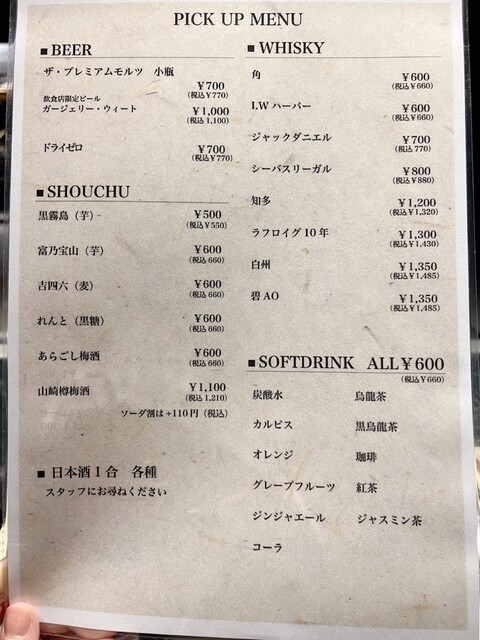 PICK UP MENU
■ BEER
ザ・プレミアムモルツ 小瓶
¥700
(税込¥770)
飲食店限定ビール
ガージェリー・ウィート
¥1,000
(税込 1,100)
ドライゼロ
¥700
(税込¥770)
■ SHOUCHU
黒霧島（芋）- ¥500
(税込¥550)
富乃宝山（芋） ¥600
(税込 660)
吉四六（麦） ¥600
(税込 660)
れんと（黒糖） ¥600
(税込 660)
あらごし梅酒 ¥600
(税込 660)
山崎樽梅酒 ¥1,100
(税込 1,210)
ソーダ割は+110円（税込）
■ 日本酒1合 各種
スタッフにお尋ねください
■ WHISKY
角 ¥600
(税込¥660)
I.W ハーパー ¥600
(税込¥660)
ジャックダニエル ¥700
(税込 770)
シーバスリーガル ¥800
(税込¥880)
知多 ¥1,200
(税込¥1,320)
ラフロイグ10年 ¥1,300
(税込¥1,430)
白州 ¥1,350
(税込¥1,485)
碧AO ¥1,350
(税込¥1,485)
■ SOFTDRINK ALL¥600
(税込¥660)
炭酸水 烏龍茶
カルピス 黒烏龍茶
オレンジ 珈琲
グレープフルーツ 紅茶
ジンジャエール ジャスミン茶
コーラ